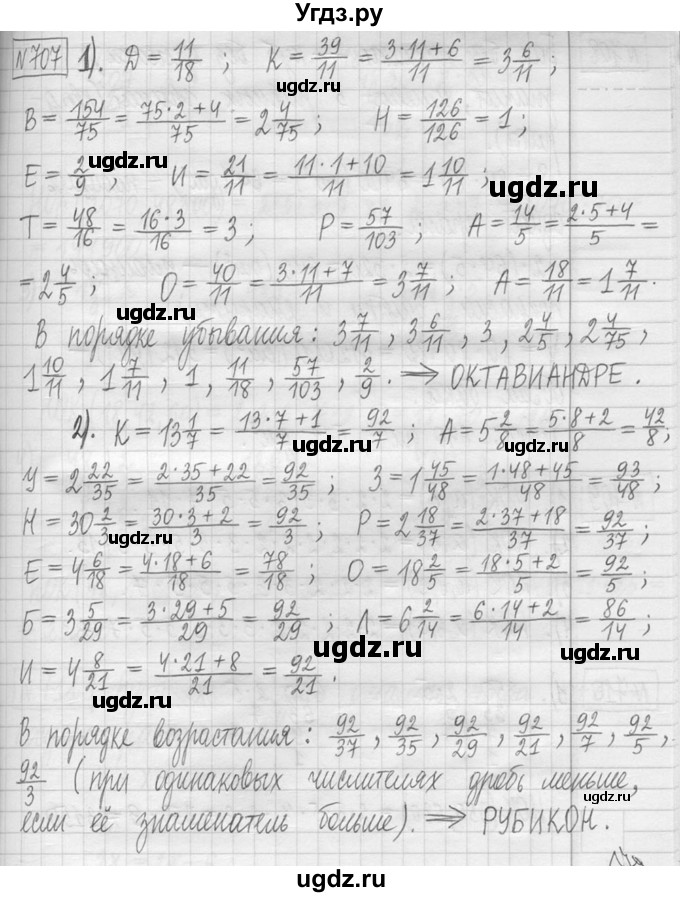 Угдз.ру
№707 1). Д = 11/18 ; К = 39/11 = (3·11+6)/11 = 3 6/11 ;
ugdz.ru
В = 154/75 = (75·2+4)/75 = 2 4/75 ; Н = 126/126 = 1 ;
ugdz.ru
Е = 2/9 ; И = 21/11 = (11·1+10)/11 = 1 10/11 ;
ugdz.ru ugdz.ru
Т = 48/16 = (16·3)/16 = 3 ; Р = 57/103 ; А = 14/5 = (2·5+4)/5 =
ugdz.ru
= 2 4/5 ; О = 40/11 = (3·11+7)/11 = 3 7/11 ; А = 18/11 = 1 7/11 .
ugdz.ru
В порядке убывания : 3 7/11 , 3 6/11 , 3 , 2 4/5 , 2 4/75 ,
ugdz.ru
1 10/11 , 1 7/11 , 1 , 11/18 , 57/103 , 2/9 . ⟹ ОКТАВИАНДРЕ .
ugdz.ru
2). К = 13 1/7 = (13·7+1)/7 = 92/7 ; А = 5 2/8 = (5·8+2)/8 = 42/8 ;
ugdz.ru ugdz.ru
У = 2 22/35 = (2·35+22)/35 = 92/35 ; З = 1 45/48 = (1·48+45)/48 = 93/48 ;
ugdz.ru
Н = 30 2/3 = (30·3+2)/3 = 92/3 ; Р = 2 18/37 = (2·37+18)/37 = 92/37 ;
ugdz.ru ugdz.ru
Е = 4 6/18 = (4·18+6)/18 = 78/18 ; О = 18 2/5 = (18·5+2)/5 = 92/5 ;
ugdz.ru
Б = 3 5/29 = (3·29+5)/29 = 92/29 ; Л = 6 2/14 = (6·14+2)/14 = 86/14 ;
ugdz.ru
И = 4 8/21 = (4·21+8)/21 = 92/21 .
ugdz.ru
В порядке возрастания : 92/37 , 92/35 , 92/29 , 92/21 , 92/7 , 92/5 ,
ugdz.ru
92/3 (при одинаковых числителях дробь меньше,
ugdz.ru ugdz.ru
если её знаменатель больше). ⟹ РУБИКОН .
ugdz.ru
ugdz.ru